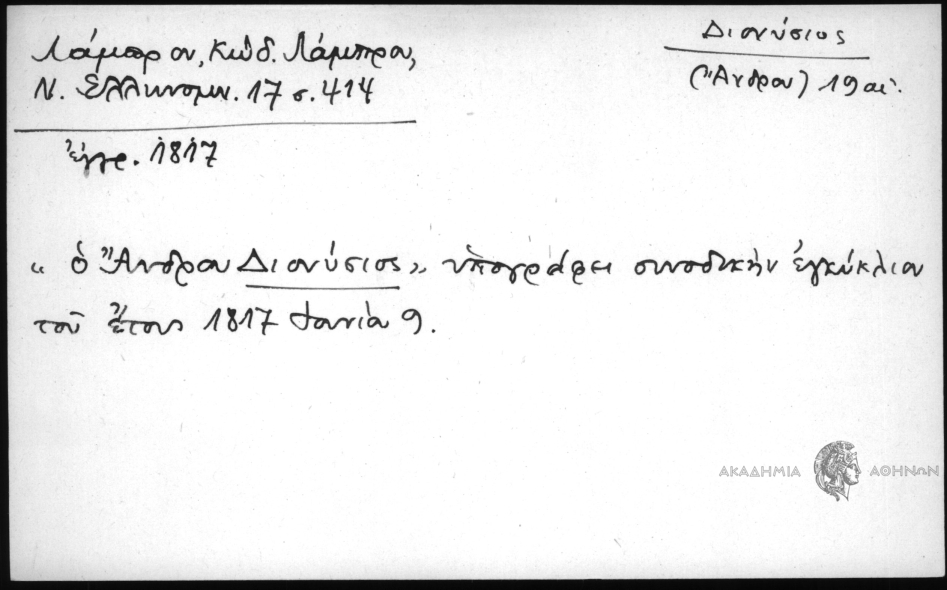 Διονύσιος
(Ἄνδρου) 19 αἰ.
Λάμπρου, Κώδ. Λάμπρου,
Ν. Ἑλληνομν. 17 σ. 414
ἔγγρ. 1817
« ὁ Ἄνδρου Διονύσιος» ὑπογράφει συνοδικὴν ἐγκύκλιον
τοῦ ἔτους 1817 9.
ΑΚΑΔΗΜΙΑ ΑΘΗΝΩΝ